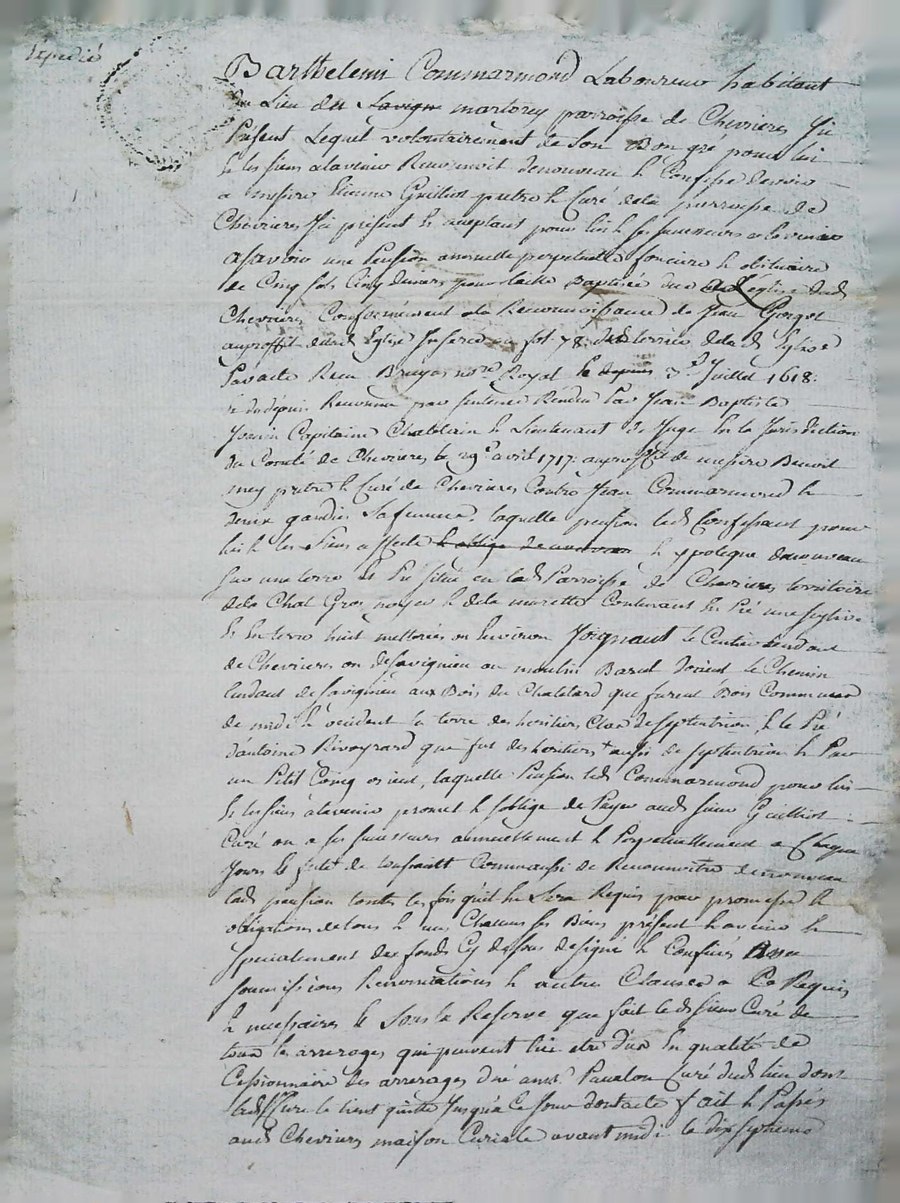 Expedié
Barthelemi Commarmond Laboureur habitant
du Lieu de Savign martorey parroisse de Chevrieres Ici
Present Lequel volontairement de son Bon gré pour lui
& les siens alavenir Reconnoit denouveau & Confesse devoir
a messire Etienne Guilliot pretre & Curé dela parroisse de
Chevrieres Ici présent & aceptant pour lui & ses sucesseurs alavenir
asavoir une Pension annuelle perpetuelle fonciere & obituaire
de Cinq sols Cinq deniers pour laditte Baptisée due a L'église dud
Chevrieres Conformement ala Reconnoissance de Jean
auproffit delad Eglise Inserée au fol 78 du terrier delad Eglise
Par acte Recu Bruyas no.re Royal le depuis 3.e Juillet 1618:
& dudepuis Reconnue par sentence Rendue Par Jean Baptiste
Capitaine Chatelain & Lieutenant de Juge En la Jurisdiction
du Comté de Chevrieres le 29.e avril 1717: auproffit de messire Benoit
mey pretre & Curé de Chevrieres Contre Jean Commarmond &
gaudin Safemme, laquelle pension led Confessant pour
lui & les siens affecte & oblige denouveau & ypoteque denouveau
sur une terre & Pré situé en lad Parroisse de Chevrieres territoire
dela Chal Gros noyer & dela murette Contenant En Pré une
& En terre huit metterées ou Environ Joignant le Centier tendant
de Chevrieres ou desavignieu au moulin Baral dorient le Chemin
tendant desavignieu aux Bois du Chatelard que furent Bois Commun
de midi & occident la terre des heritiers de septentrion, & le Pré
d'antoine Rivoyrard que fut des heritiers + aussi de septentrion & Par
un Petit Coing orient, laquelle Pension led Commarmond pour lui
& les siens alavenir promet & soblige de Payer aud sieur Guilliot
Curé ou a ses sucesseurs annuellement & Perpetuellement a Chaque
Jour & fete de toussaint Commaussi de Reconnoitre denouveau
lad pension toutte les fois quil En Sera Requis par promesse &
obligations detous & un Chacuns ses Biens présent & avenir &
specialement des fonds Cy dessus designé & Confinés
soumissions Renonciations & autres Clauses a Ce Requis
& necessaires & Sous la Reserve que fait led sieur Curé de
tous les arrerages qui peuvent lui etre dus En qualité de
Cessionnaire des arrerages Curé dud lieu dont
led sieur le tient quitte Jusqu'a Ce Jour dontacte fait & Passé
aud Chevrieres maison Curiale avant midi le dix septieme